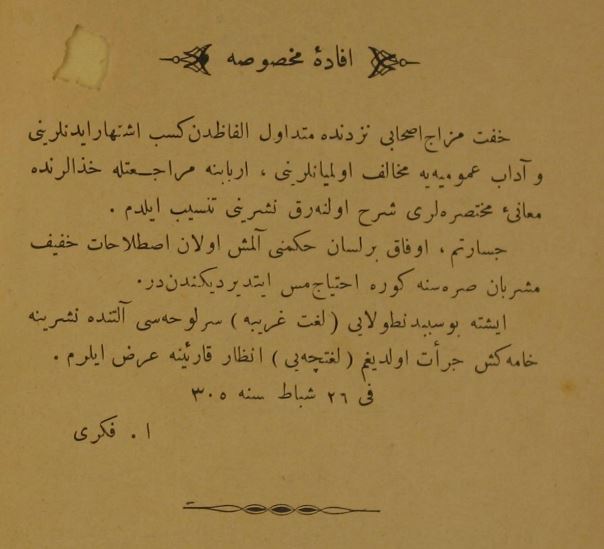 افادۀ مخصوصه
خفت مزاج اصحابی نزدنده متداول الفاظدن کسب اشتهار ایدنلرینی
و آداب عمومیه‌یه مخالف اولمیانلرینی ، اربابنه مراجعتله خذالرنده
معانئ مختصره‌لری شرح اولنه‌رق نشرینی تنسیب ایلدم .
جسارتم ، اوفاق بر لسان حکمنی آلمش اولان اصطلاحات خفیف
مشربان صره‌سنه کوره احتیاج مس ایتدیردیکندن‌در.
ایشته بو سببدنطولایی ( لغت غریبه ) سرلوحه‌سی آلتنده نشرینه
خامه‌کش جرأت اولدیغم ( لغتچه‌یی ) انظار قارئینه عرض ایلرم .
فی ٢٦ شباط سنه ٣٠٥
ا . فکری